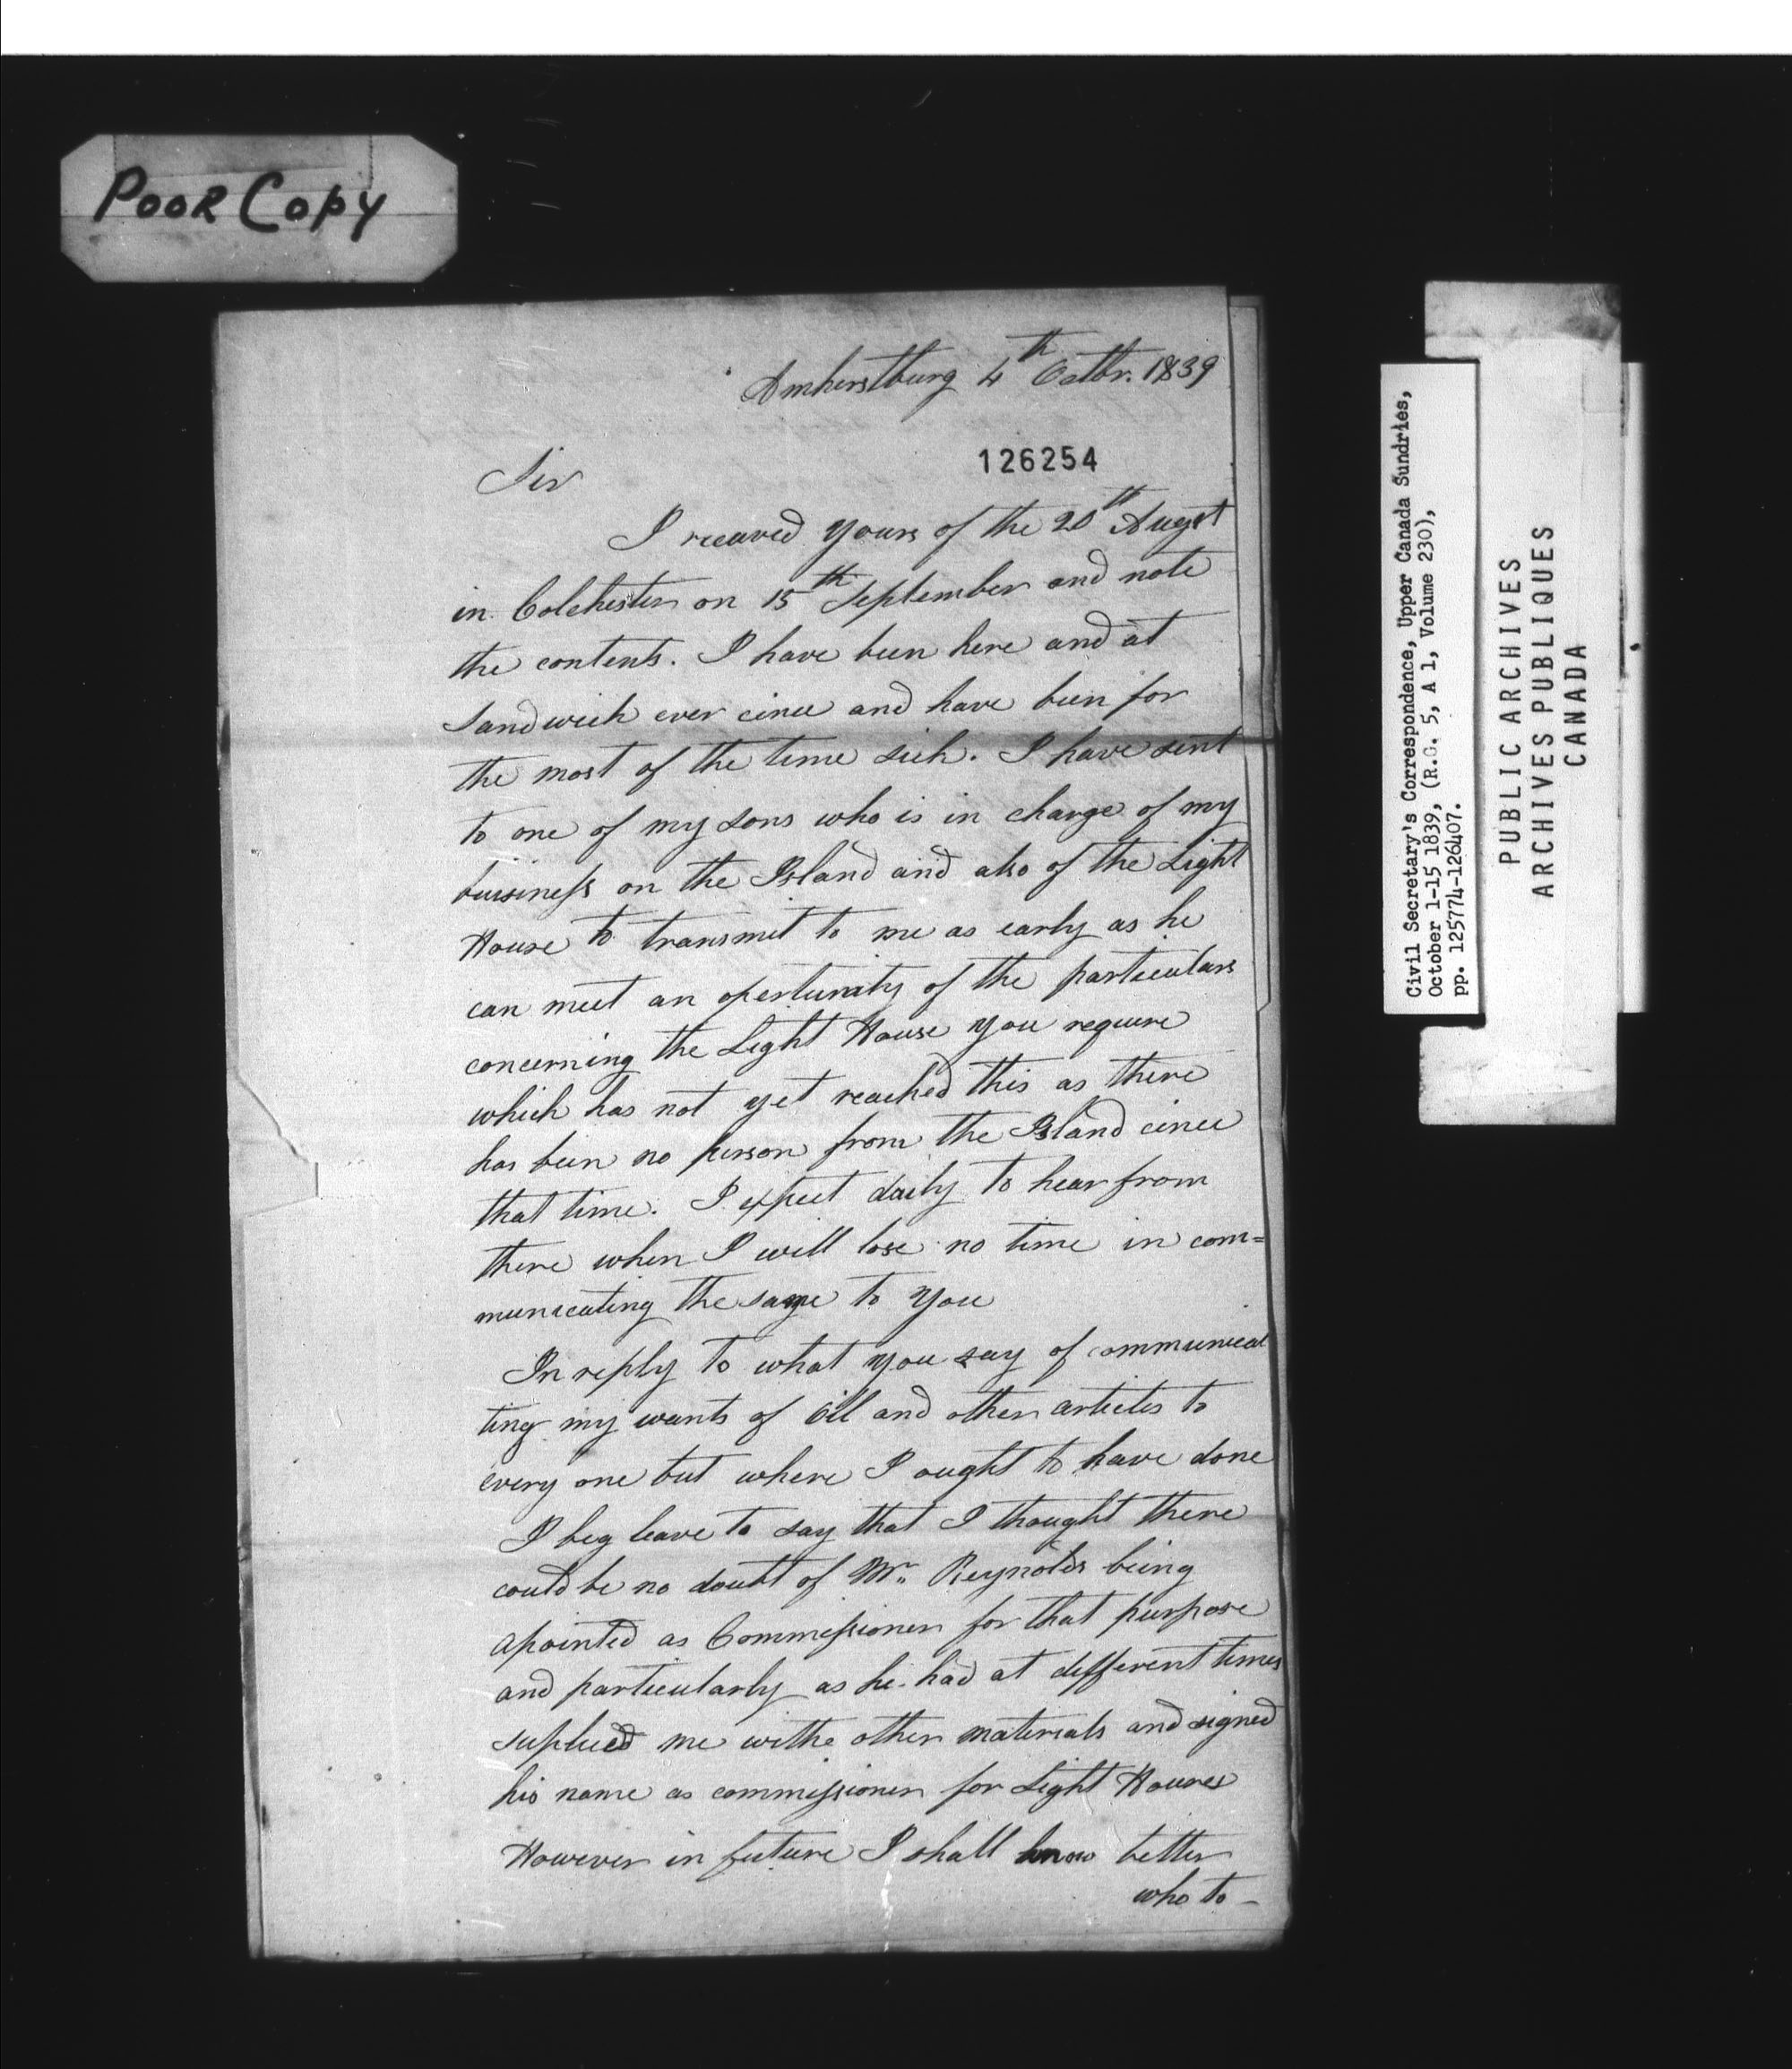 Poor Copy
Amherstburg 4th Octbr. 1839
126254
Sir
I receaved yours of the 20th Augst
in Colchester on 15th September and note
the contents. I have been here and at
Sandwich ever cince and have been for
the most of the time sick. I have sent
to one of my sons who is in charge of my
buisiness on the Island and also of the Light
House to transmit to me as early as he
can meet an opertunity of the particulars
concerning the Light House you require
which has not yet reached this as there
has been no person from the Island cince
that time. I expect daily to hear from
there when I will lose no time in com=
municating the same to you
In reply to what you say of communica
ting my wants of Oil and other articles to
every one but where I ought to have done
I beg leave to say that I thought there
could be no doubt of Mr. Reynolds being
apointed as Commissioner for that purpose
and particularly as he had at different times
suplied me withe other materials and signed
his name as commissioner for Light Houses
However in future I shall know better
who to -
Civil Secretary's Correspondence, Upper Canada Sundries,
October 1-15 1839, (R.G. 5, A 1, Volume 230),
pp. 125774-126407.
PUBLIC ARCHIVES
ARCHIVES PUBLIQUES
CANADA